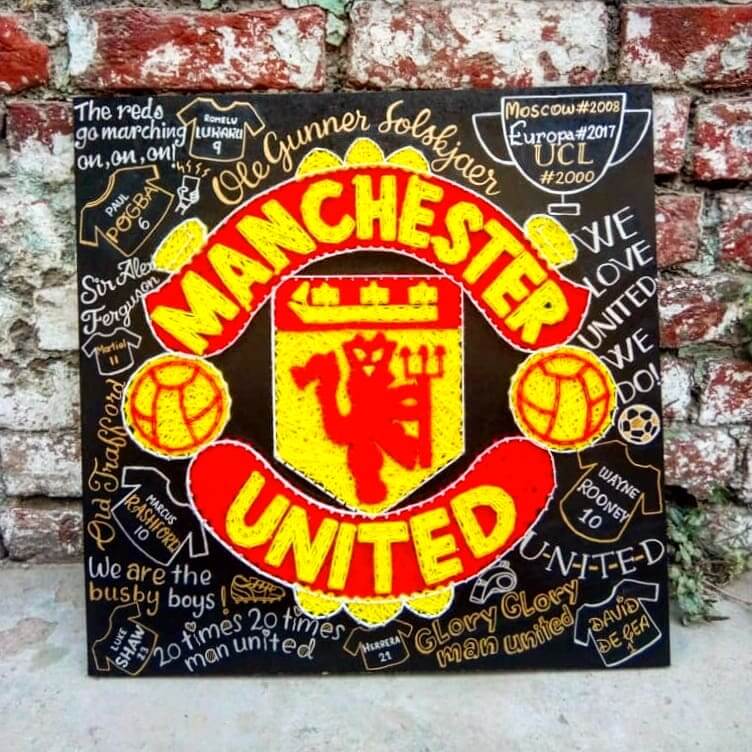 The reds
go marching
on, on, on!
ROMELU
LUKAKU
9
Ole Gunner Solskjaer
Moscow#2008
Europa#2017
UCL
#2000
PAUL
POGBA
6
MANCHESTER
WE
LOVE
UNITED
WE
DO!
Sir Alex
Ferguson
Martial
11
Old Trafford
MARCUS
RASHFORD
10
WAYNE
ROONEY
10
UNITED
U-N-I-T-E-D
We are the
busby boys!
LUKE
SHAW
23
20 times 20 times
man united
HERRERA
21
GLORY GLORY
man united
DAVID
DE GEA
1